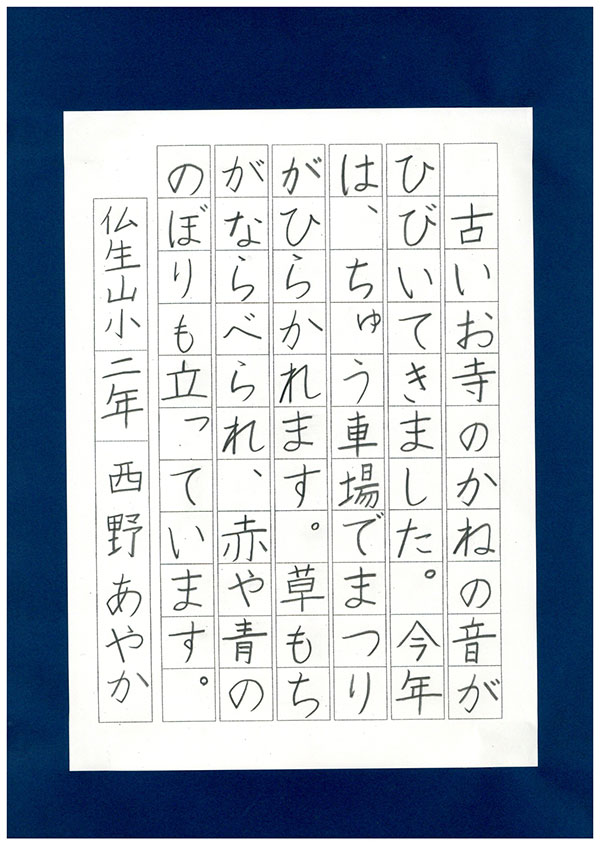 古いお寺のかねの音が
ひびいてきました。今年
は、ちゅう車場でまつり
がひらかれます。草もち
がならべられ、赤や青の
のぼりも立っています。
仏生山小 二年 西野あやか